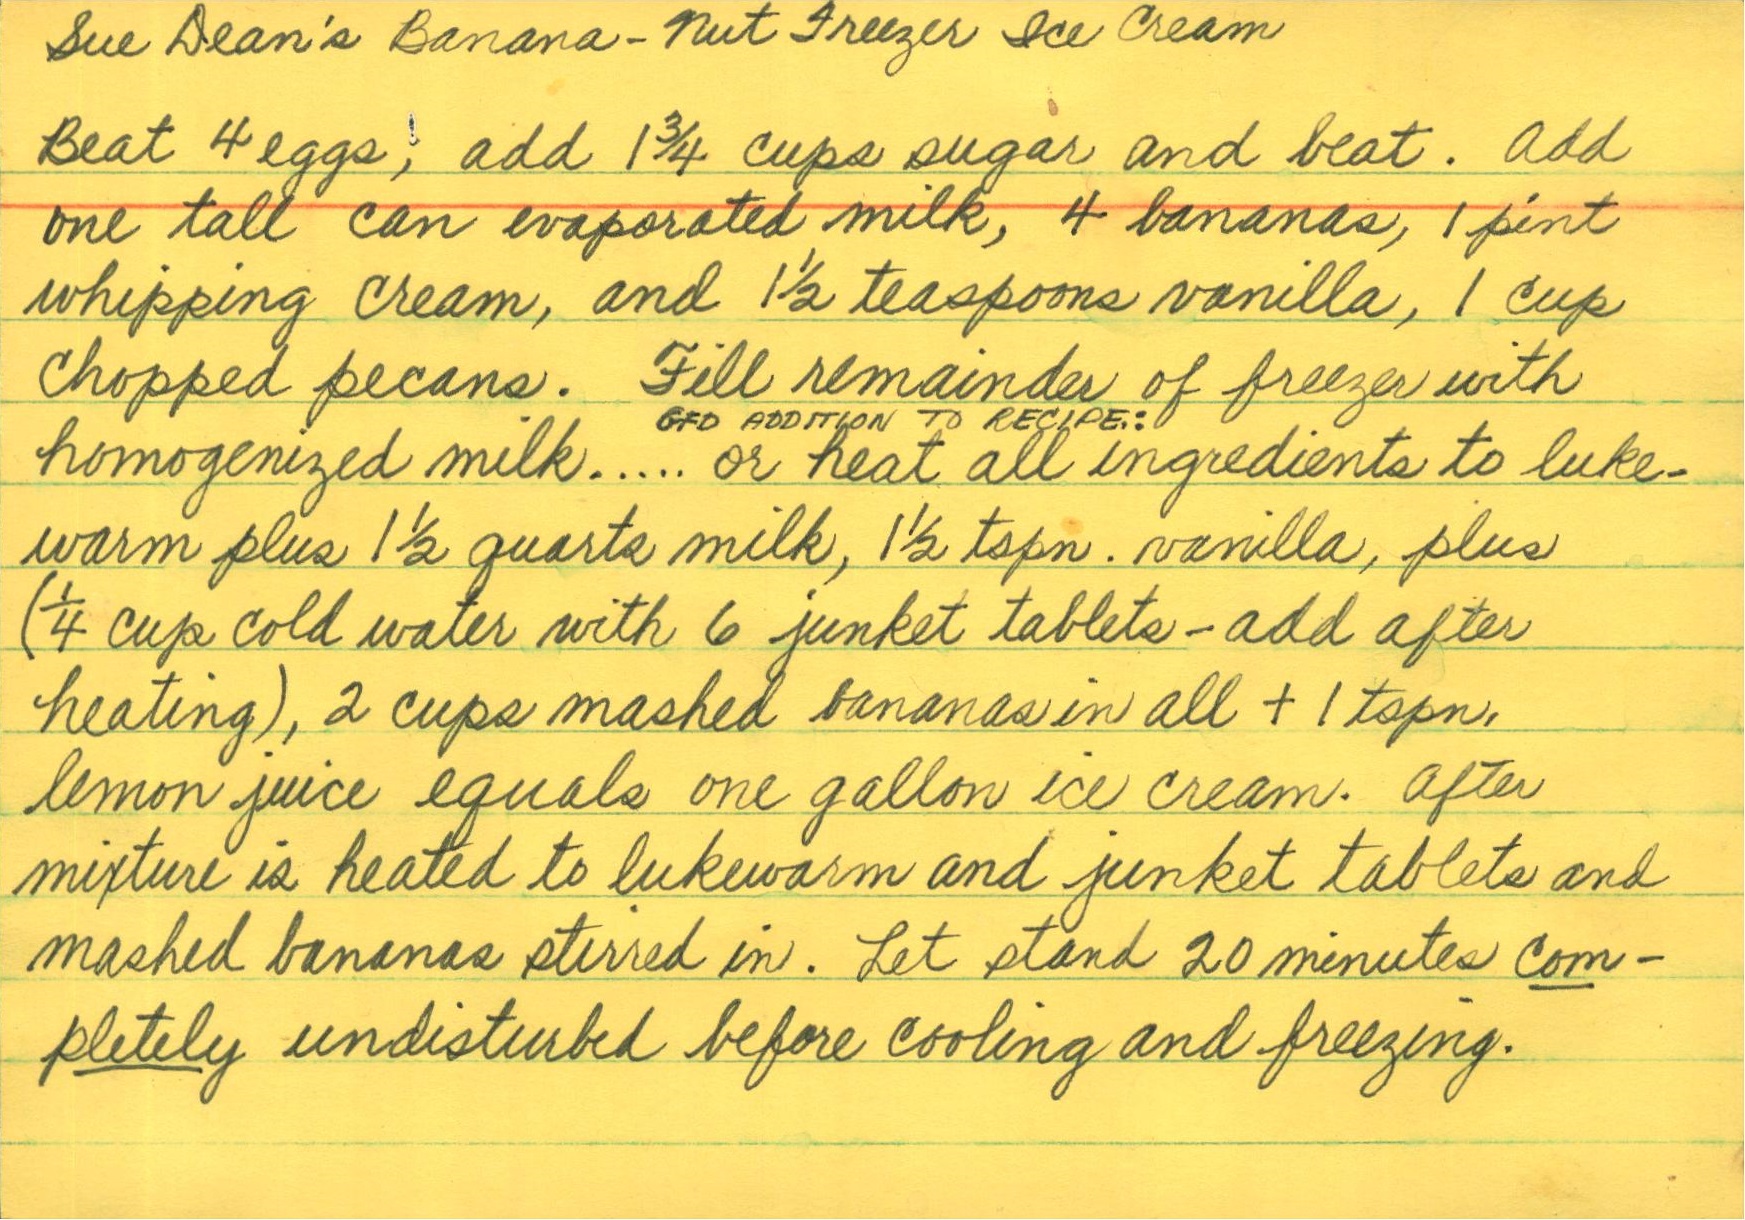 Sue Dean's Banana-Nut Freezer Ice Cream
Beat 4 eggs; add 1 3/4 cups sugar and beat. Add
one tall can evaporated milk, 4 bananas, 1 pint
whipping cream, and 1 1/2 teaspoons vanilla, 1 cup
chopped pecans. Fill remainder of freezer with
GFD ADDITION TO RECIPE:
homogenized milk..... or heat all ingredients to luke-
warm plus 1 1/2 quarts milk, 1 1/2 tspn. vanilla, plus
(1/4 cup cold water with 6 junket tablets - add after
heating), 2 cups mashed bananas in all + 1 tspn.
lemon juice equals one gallon ice cream. After
mixture is heated to lukewarm and junket tablets and
mashed bananas stirred in. Let stand 20 minutes com-
pletely undisturbed before cooling and freezing.